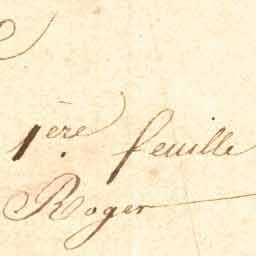 1ère feuille
Roger